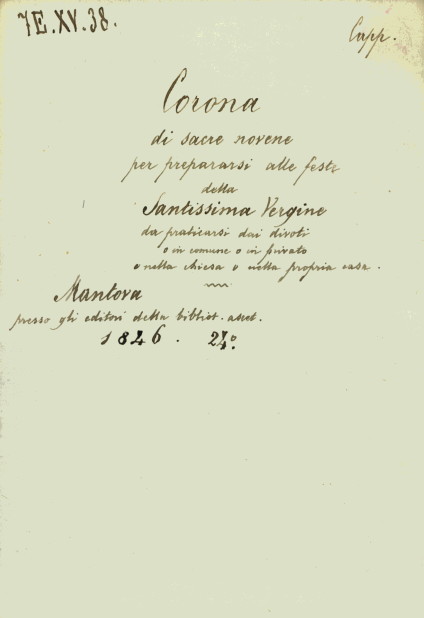 7E.XV.38.
Capp.
Corona
di sacre novene
per prepararsi alle feste
della
Santissima Vergine
da praticarsi dai divoti
o in comune o in privato
o nella chiesa o nella propria casa.
Mantova
presso gli editori della bibliot. ascet.
1846. 24°.